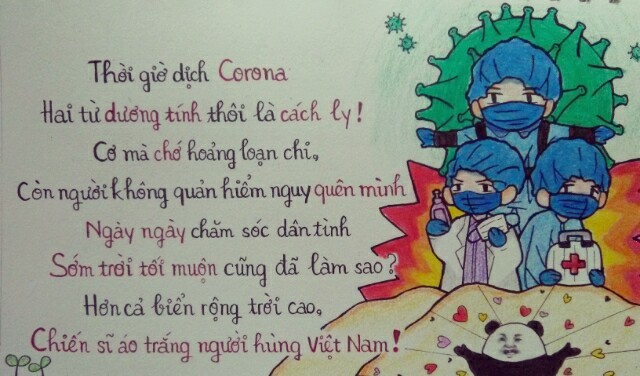 Thời giờ dịch Corona
Hai từ dương tính thôi là cách ly!
Cơ mà chớ hoảng loạn chi,
Còn người không quản hiểm nguy quên mình
Ngày ngày chăm sóc dân tình
Sớm trời tối muộn cũng đã làm sao?
Hơn cả biển rộng trời cao,
Chiến sĩ áo trắng người hùng Việt Nam!